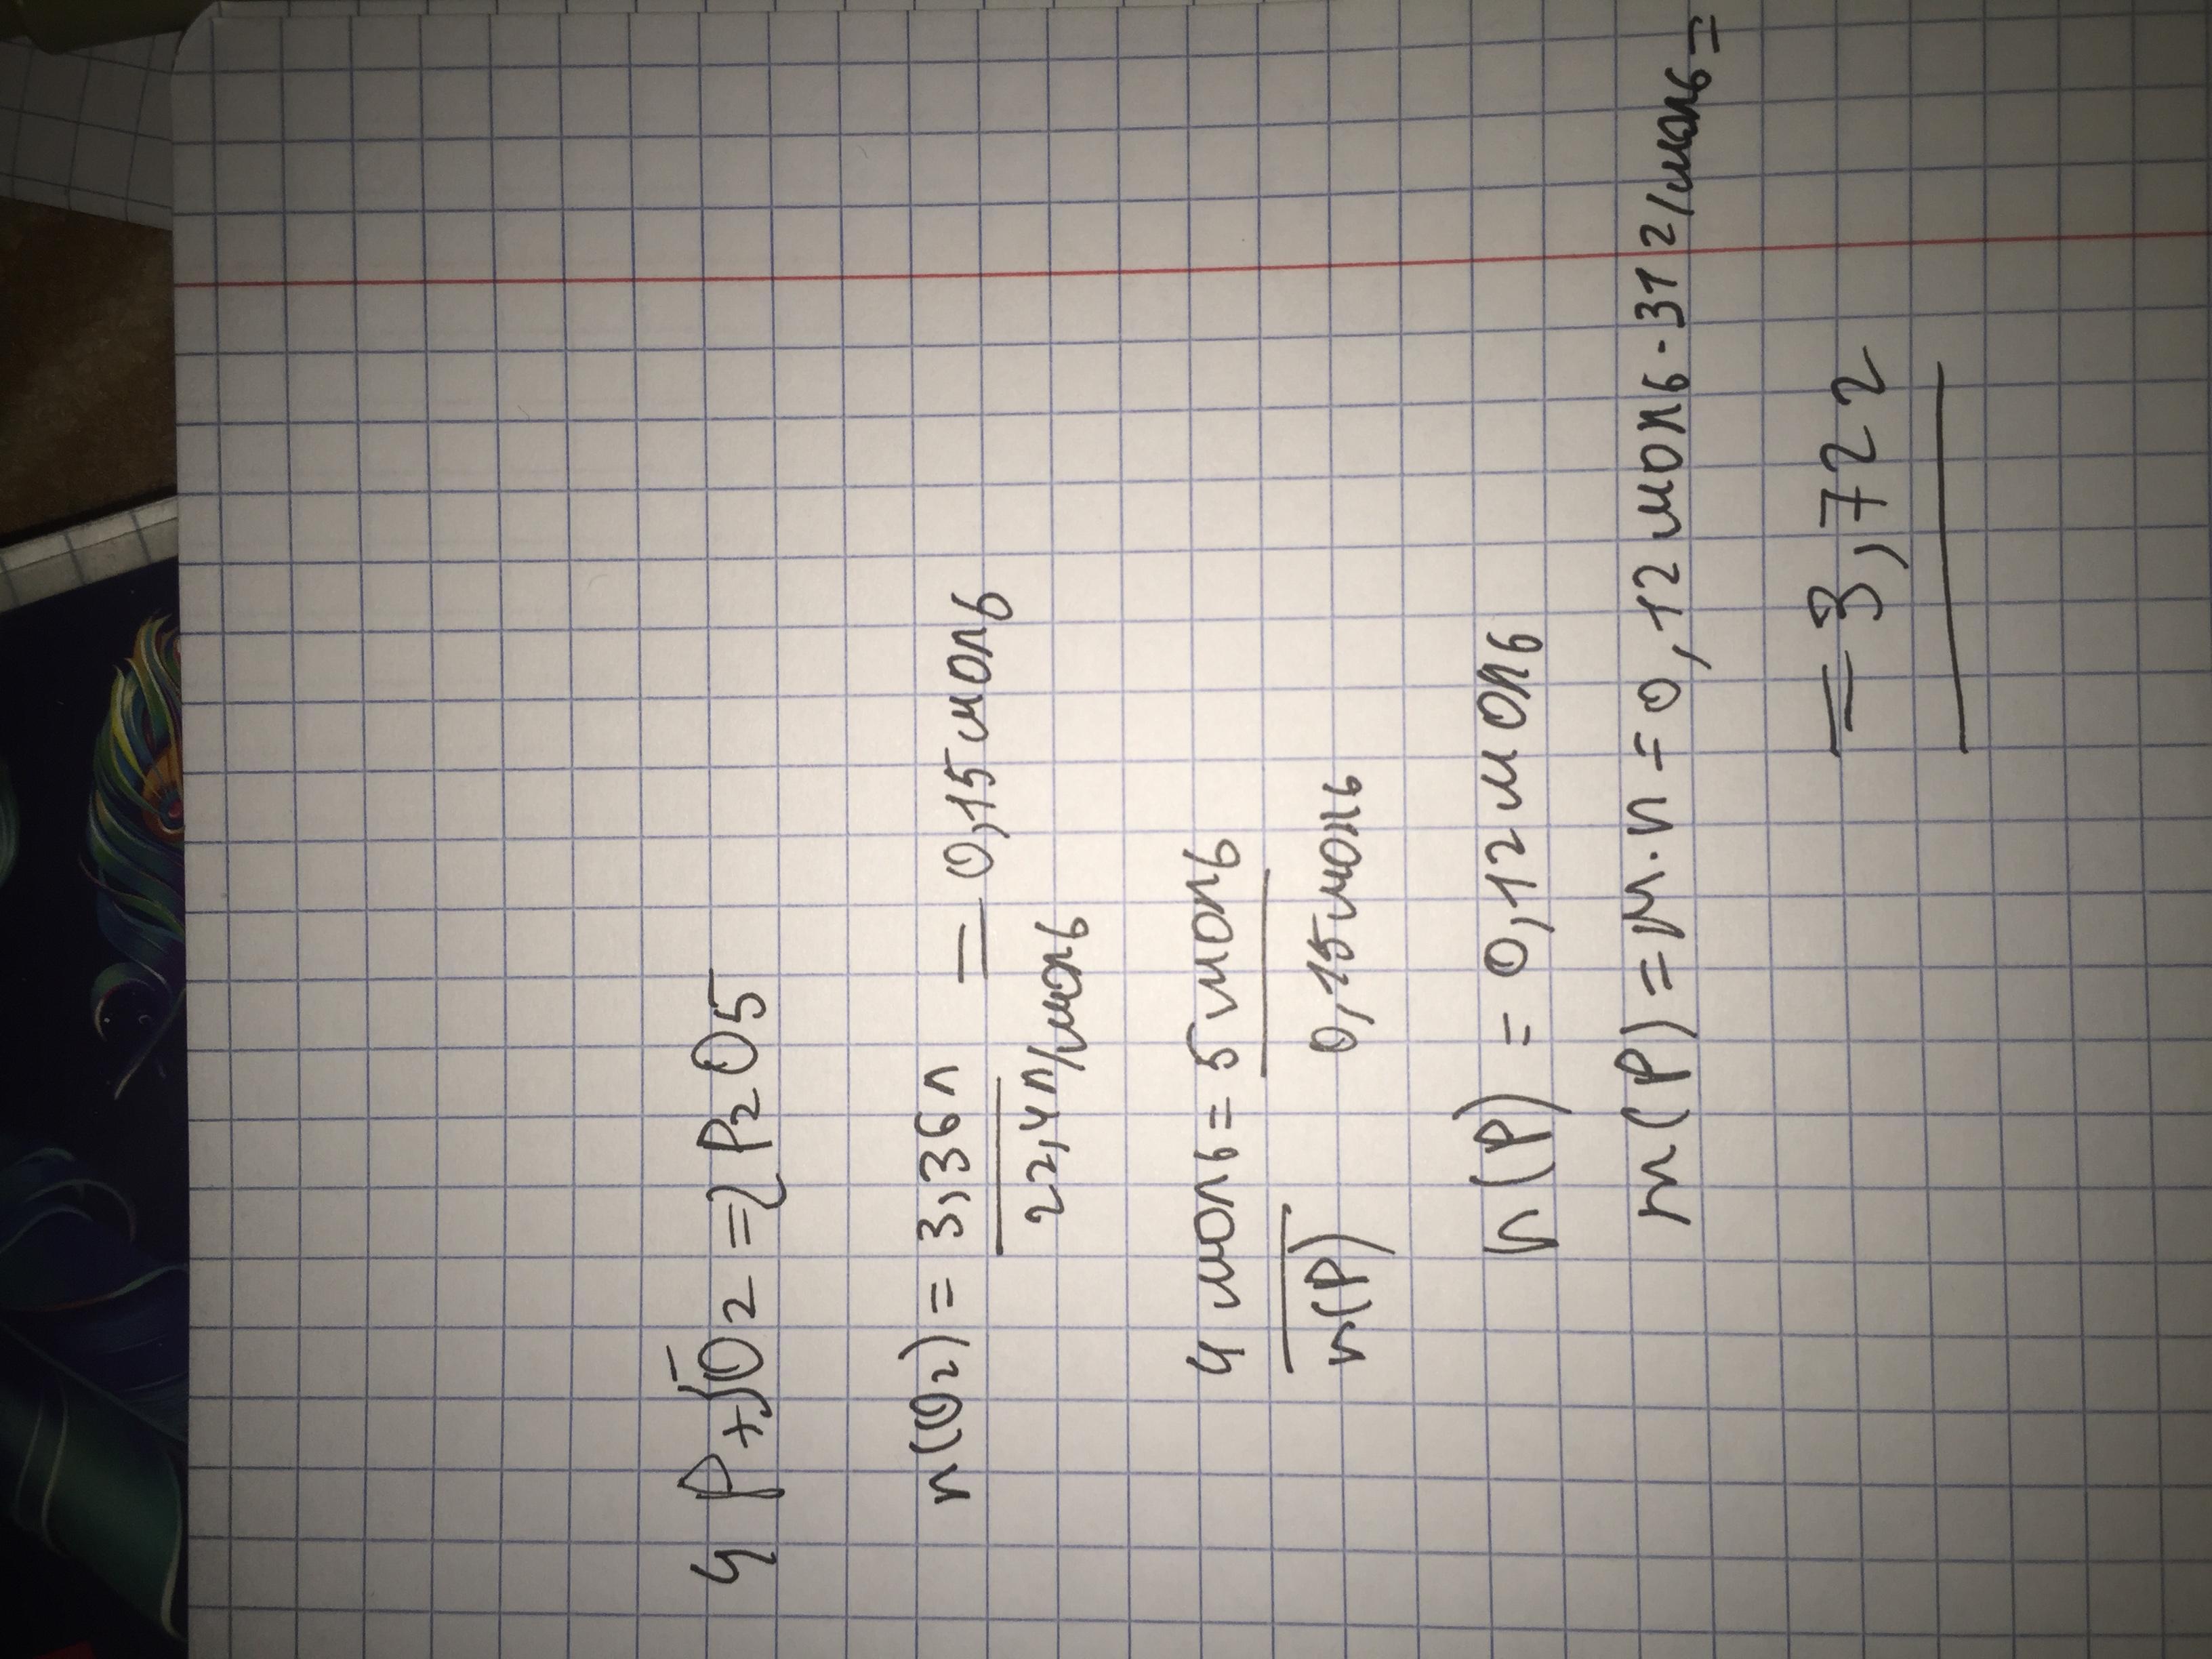 4P+5O2=2P2O5
n(O2) = 3,36л = 0,15моль
22,4л/моль
4 моль = 5 моль
n(P) 0,15моль
n(P) = 0,12моль
m(P)=M·n=0,12моль·31г/моль=
=3,72г